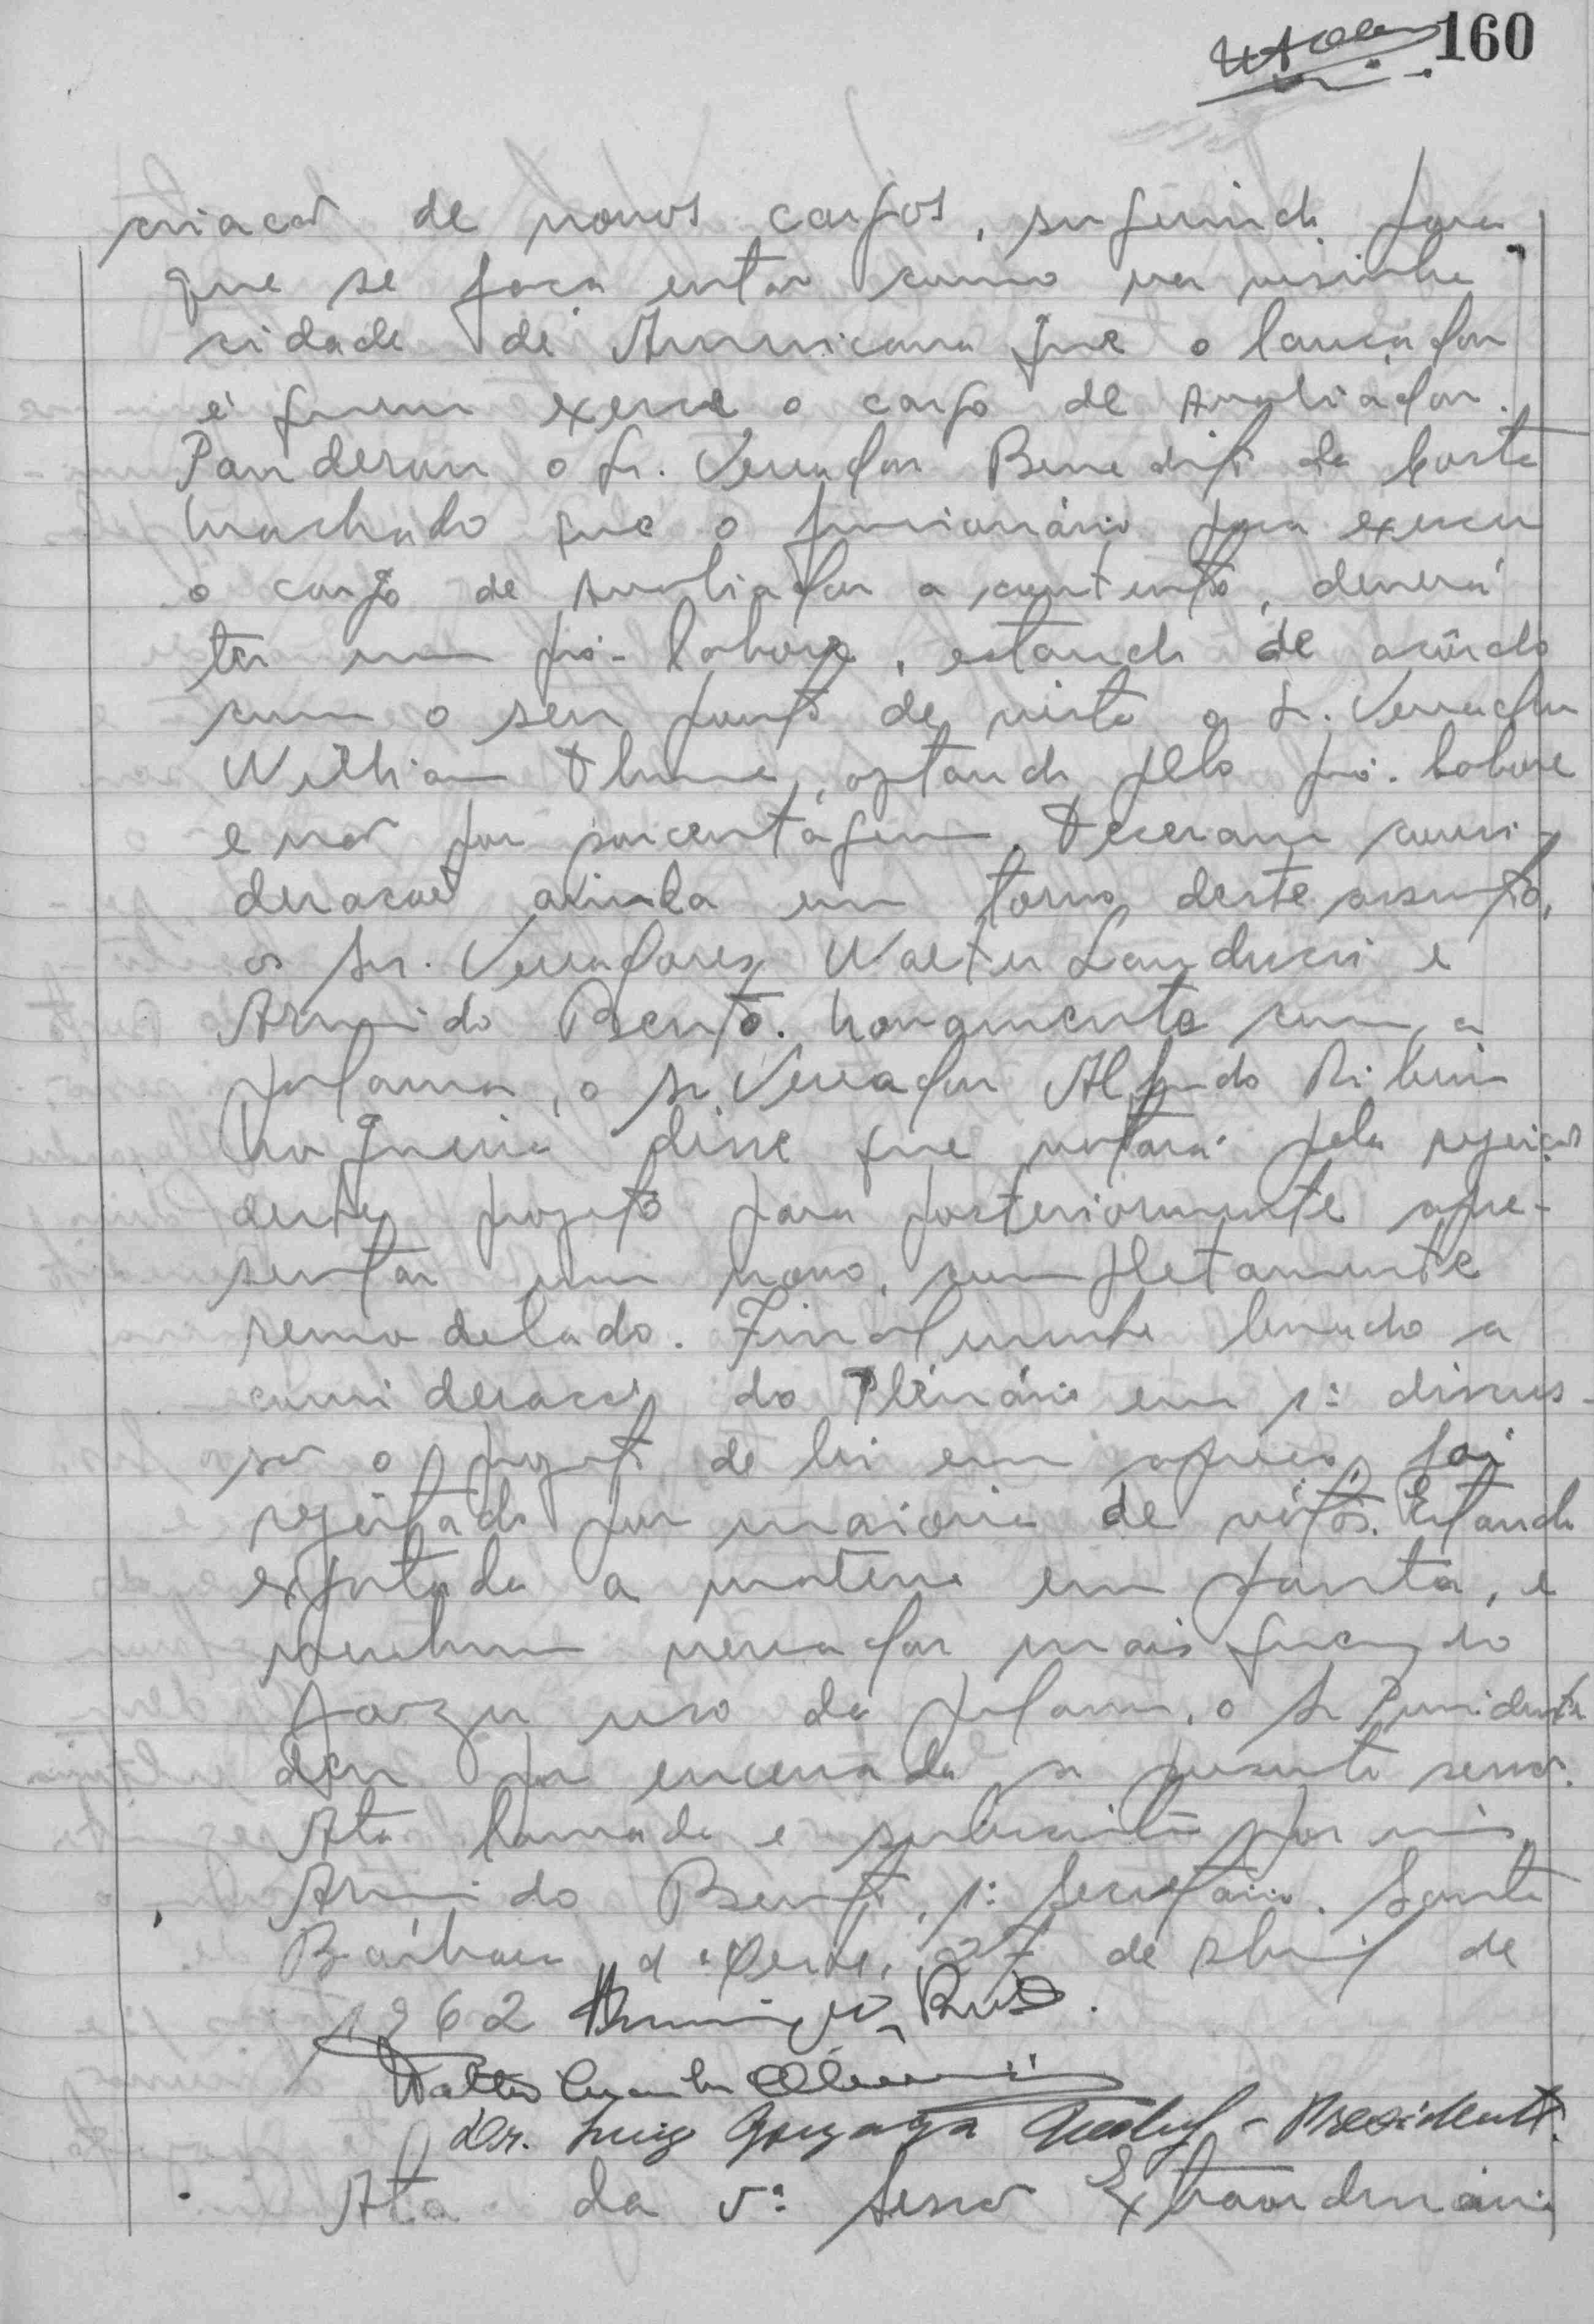 160
criacao de novos cargos, sugerindo para
que se faca entao como na visinha
cidade de Americana que o lancador
é quem exerce o cargo de Avaliador.
Ponderou o Sr. Vereador Benedito da Costa
Machado que o funcionário para exercer
o cargo de Avaliador a contento, deverá
ter um pró-labore, estando de acôrdo
com o seu ponto de vista o Sr. Vereador
Willian Thume, optando pelo pró-labore
e nao por porcentagem. Teceram consi-
deracoes ainda em torno deste assunto,
os Srs. Vereadores Walter Landucci e
Armindo Bento. Novamente com a
palavra, o Sr. Vereador Alfredo Ribeiro
Nogueira disse que votará pela rejeiçao
deste projeto para posteriormente apre-
sentar um novo, completamente
remodelado. Finalmente levado a
consideracao do Plenário em 1ª discus-
sao o projeto de lei em apreco, foi
rejeitado por maioria de votos. Estando
esgotada a materia em pauta, e
nenhum vereador mais querendo
fazer uso da palavra, o Sr Presidente
deu por encerrada a presente sessao.
Ata lavrada e subscrita por mim,
Armindo Bento, 1º Secretário. Santa
Bárbara d'Oeste, 27 de abril de
1962
Walter
Dr. Luiz Gonzaga - Presidente.
Ata da 5ª Sessao Extraordinária